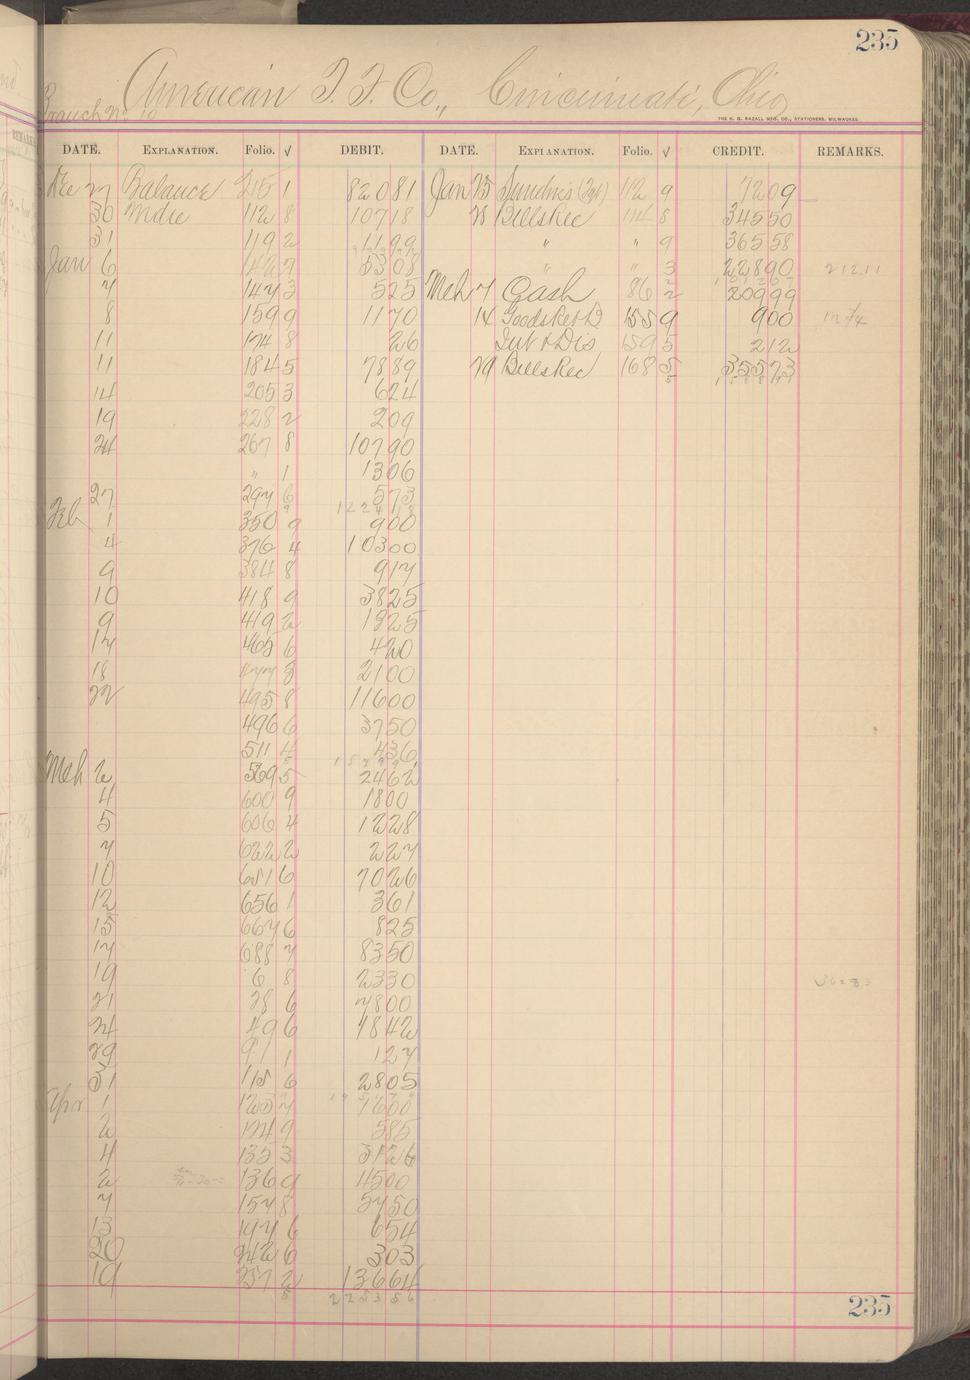 235
American T. F. Co., Cincinnati, Ohio
Branch No 10
THE H. G. RAZALL MFG. CO., STATIONERS, MILWAUKEE.
DATE. EXPLANATION. Folio. √ DEBIT. DATE. EXPLANATION. Folio. √ CREDIT. REMARKS.
Dec 27 Balance 215 1 82081 Jan 25 Sundries 112 9 7209
30 Mdse 112 8 10718 28 BillsRec 114 8 34550
31 119 2 1199 " " 9 36558
Jan 6 142 7 5308 " " 3 22890 21211
7 147 3 525 Mch 7 Cash 86 2 20999
8 159 9 1170 14 Goods Retd 155 9 900
11 174 8 26 Int & Dis 159 5 212
11 184 5 7889 29 BillsRec 168 5 35573
14 205 3 624
19 228 2 209
24 267 8 10790
" 1 1306
27 297 6 573
Feb 1 350 9 900
4 376 4 10300
9 384 8 917
10 418 9 3825
9 419 2 1925
17 465 6 420
18 477 3 2100
22 495 8 11600
496 6 3750
511 4 436
Mch 2 569 5 2462
4 600 9 1800
5 606 4 1228
7 622 2 227
10 651 6 7026
12 656 1 361
15 667 6 825
17 688 7 8350
19 6 8 2330
21 28 6 7800
24 49 6 4842
29 91 1 127
31 115 6 2805
Apr 1 123 7 1600
2 124 9 585
4 133 3 3126
2 136 9 4500
7 157 8 5750
13 197 6 654
20 242 6 303
19 257 2 13664
225356
235